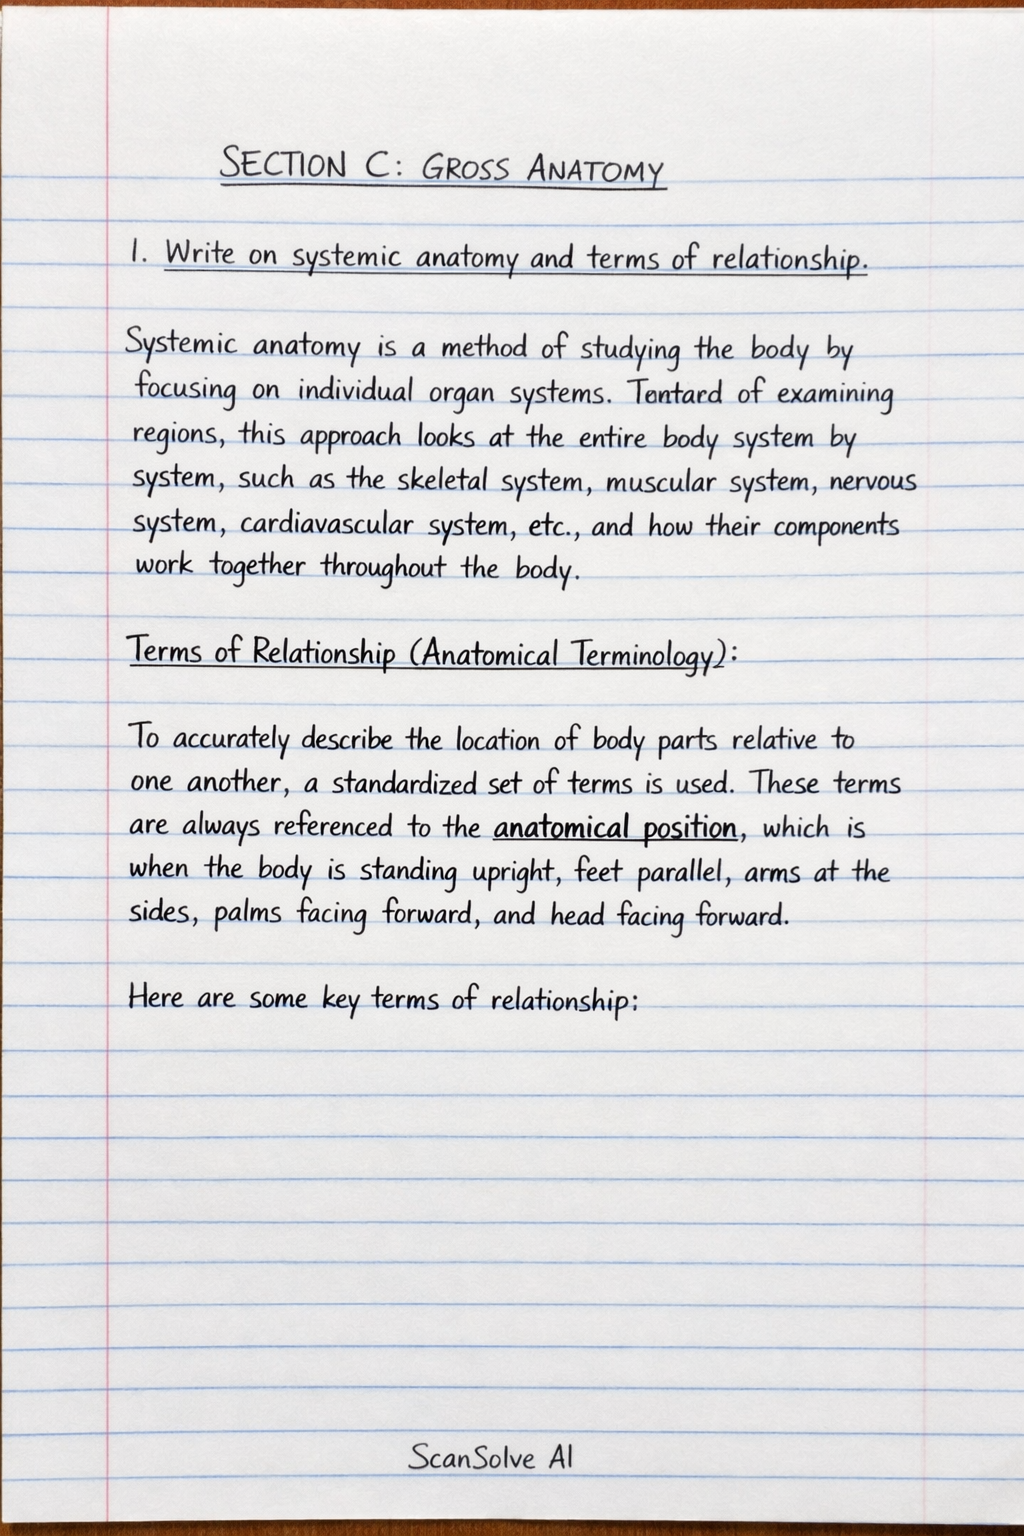 SECTION C: GROSS ANATOMY
1. Write on systemic anatomy and terms of relationship.
Systemic anatomy is a method of studying the body by
focusing on individual organ systems. Tontard of examining
regions, this approach looks at the entire body system by
system, such as the skeletal system, muscular system, nervous
system, cardiavascular system, etc., and how their components
work together throughout the body.
Terms of Relationship (Anatomical Terminology):
To accurately describe the location of body parts relative to
one another, a standardized set of terms is used. These terms
are always referenced to the anatomical position, which is
when the body is standing upright, feet parallel, arms at the
sides, palms facing forward, and head facing forward.
Here are some key terms of relationship:
ScanSolve AI